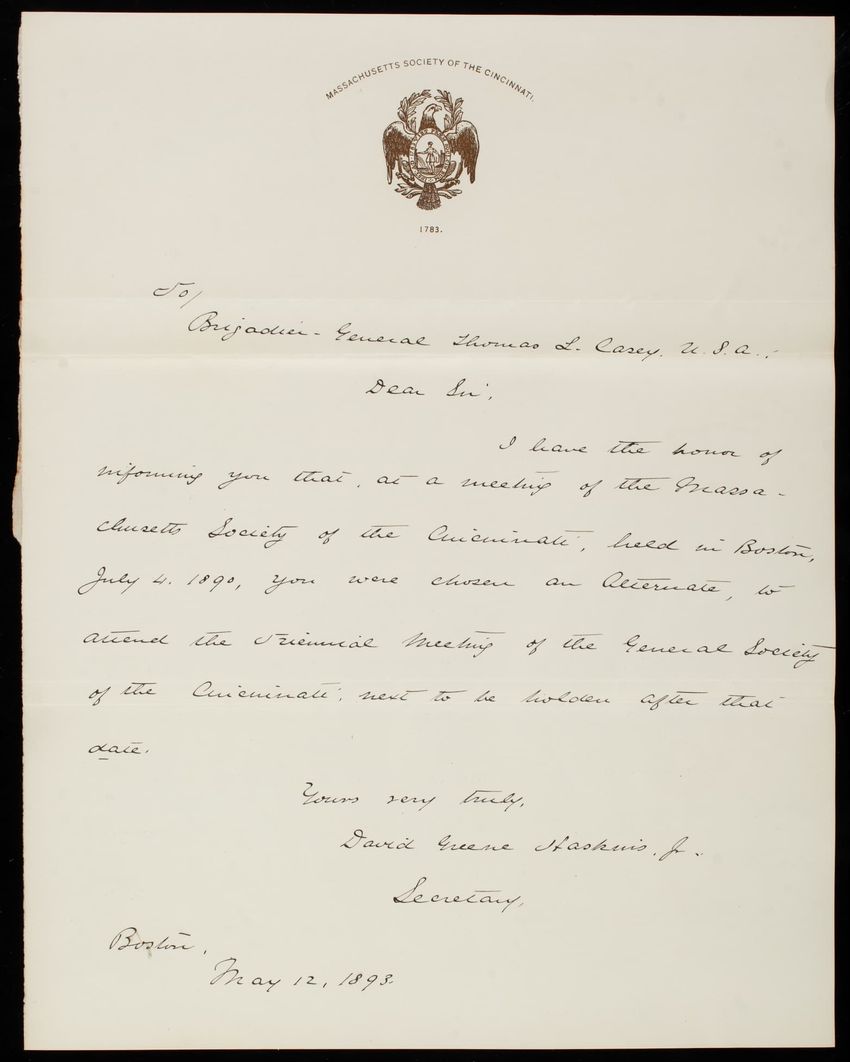 MASSACHUSETTS SOCIETY OF THE CINCINNATI.
1783.
To/
Brigadier-General Thomas L. Casey, U.S.A.;
Dear Sir;
I have the honor of
informing you that, at a meeting of the Massa-
chusetts Society of the Cincinnati, held in Boston,
July 4. 1890, you were chosen an Alternate, to
attend the Triennial Meeting of the General Society
of the Cincinnati, next to be holden after that
date.
Yours very truly,
David Greene Haskins, Jr.
Secretary,
Boston,
May 12, 1893.